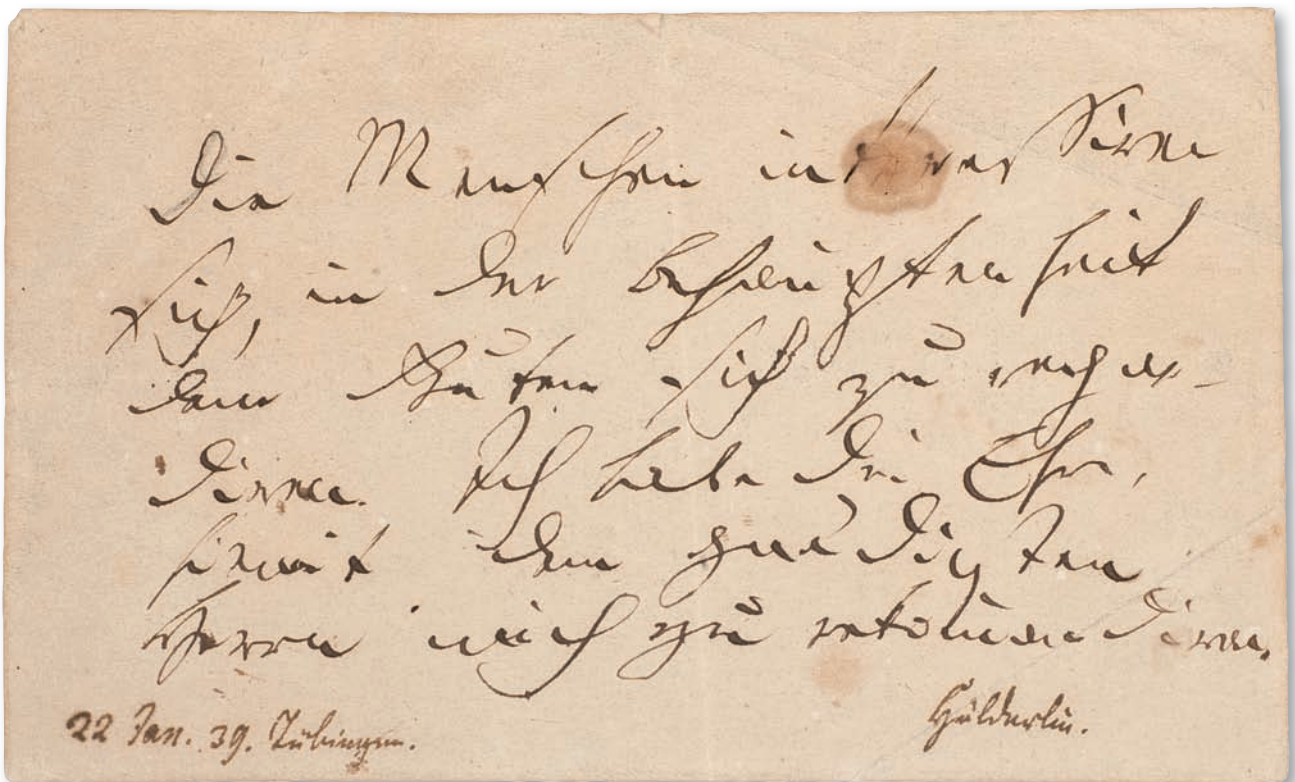 Die Menschen interessiren
sich, in der Behauptenheit
dem Guten sich zu
diren. Ich habe die Ehre,
hiemit dem gnädigsten
Herrn mich zu rekommandiren.
22 Jan. 39. Tübingen.
Hölderlin.